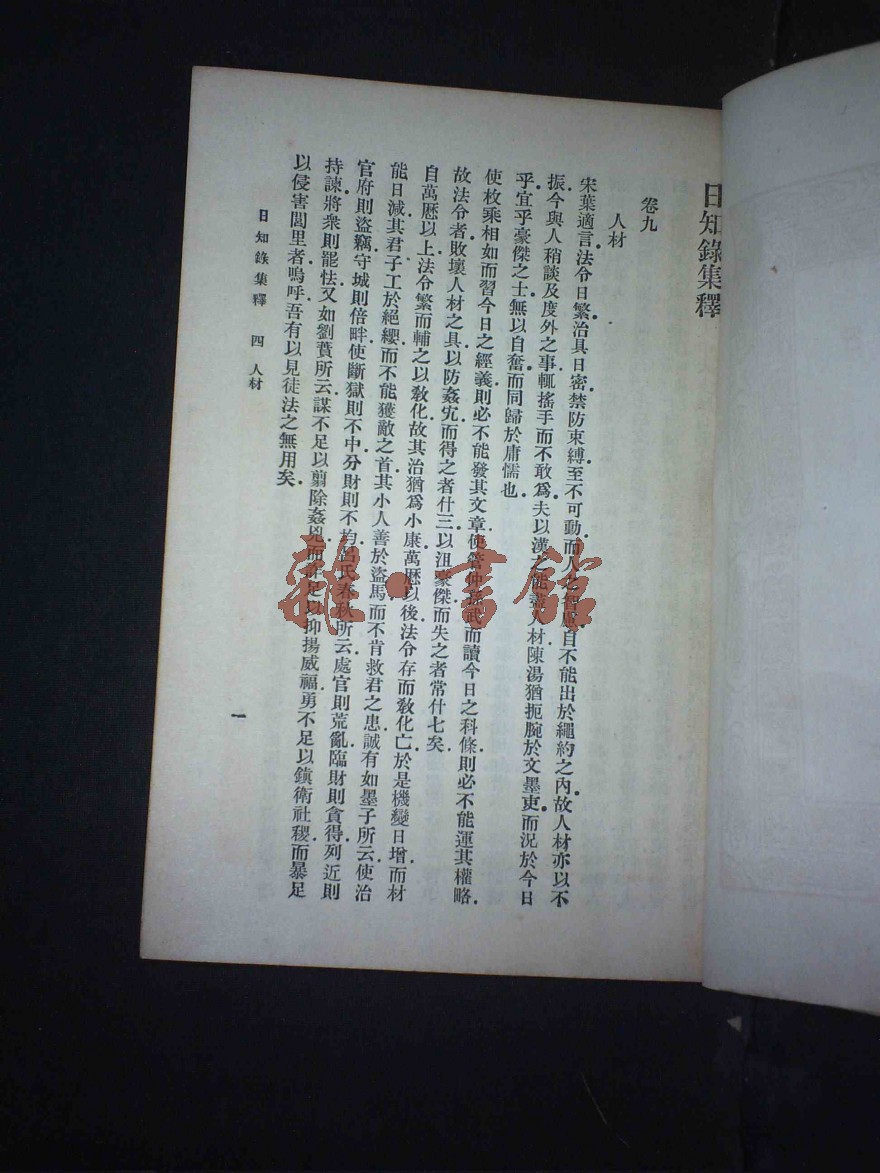 日知錄集釋
卷九
人材
宋葉適言法令日繁治具日密禁防束縛至不可動而人之智慮自不能出於繩約之內故人材亦以不
振今與人稍談及度外之事輒搖手而不敢爲夫以漢之能盡人材陳湯猶扼腕於文墨吏而況於今日
乎宜乎豪傑之士無以自奮而同歸於庸懦也
使枚乘相如而習今日之經義則必不能發其文章使管仲孫武而讀今日之科條則必不能運其權略
故法令者敗壞人材之具以防姦宄而得之者什三以沮豪傑而失之者常什七矣
自萬曆以上法令繁而輔之以敎化故其治猶爲小康萬曆以後法令存而敎化亡於是機變日增而材
能日減其君子工於絕纓而不能獲敵之首其小人善於盜馬而不肯救君之患誠有如墨子所云使治
官府則盜竊守城則倍畔使斷獄則不中分財則不均呂氏春秋所云處官則荒亂臨財則貪得列近則
持諫將衆則罷怯又如劉蕡所云謀不足以翦除姦兇而詐足以抑揚威福勇不足以鎭衛社稷而暴足
以侵害閭里者嗚呼吾有以見徒法之無用矣
日知錄集釋 四 人材
一
雜·書館